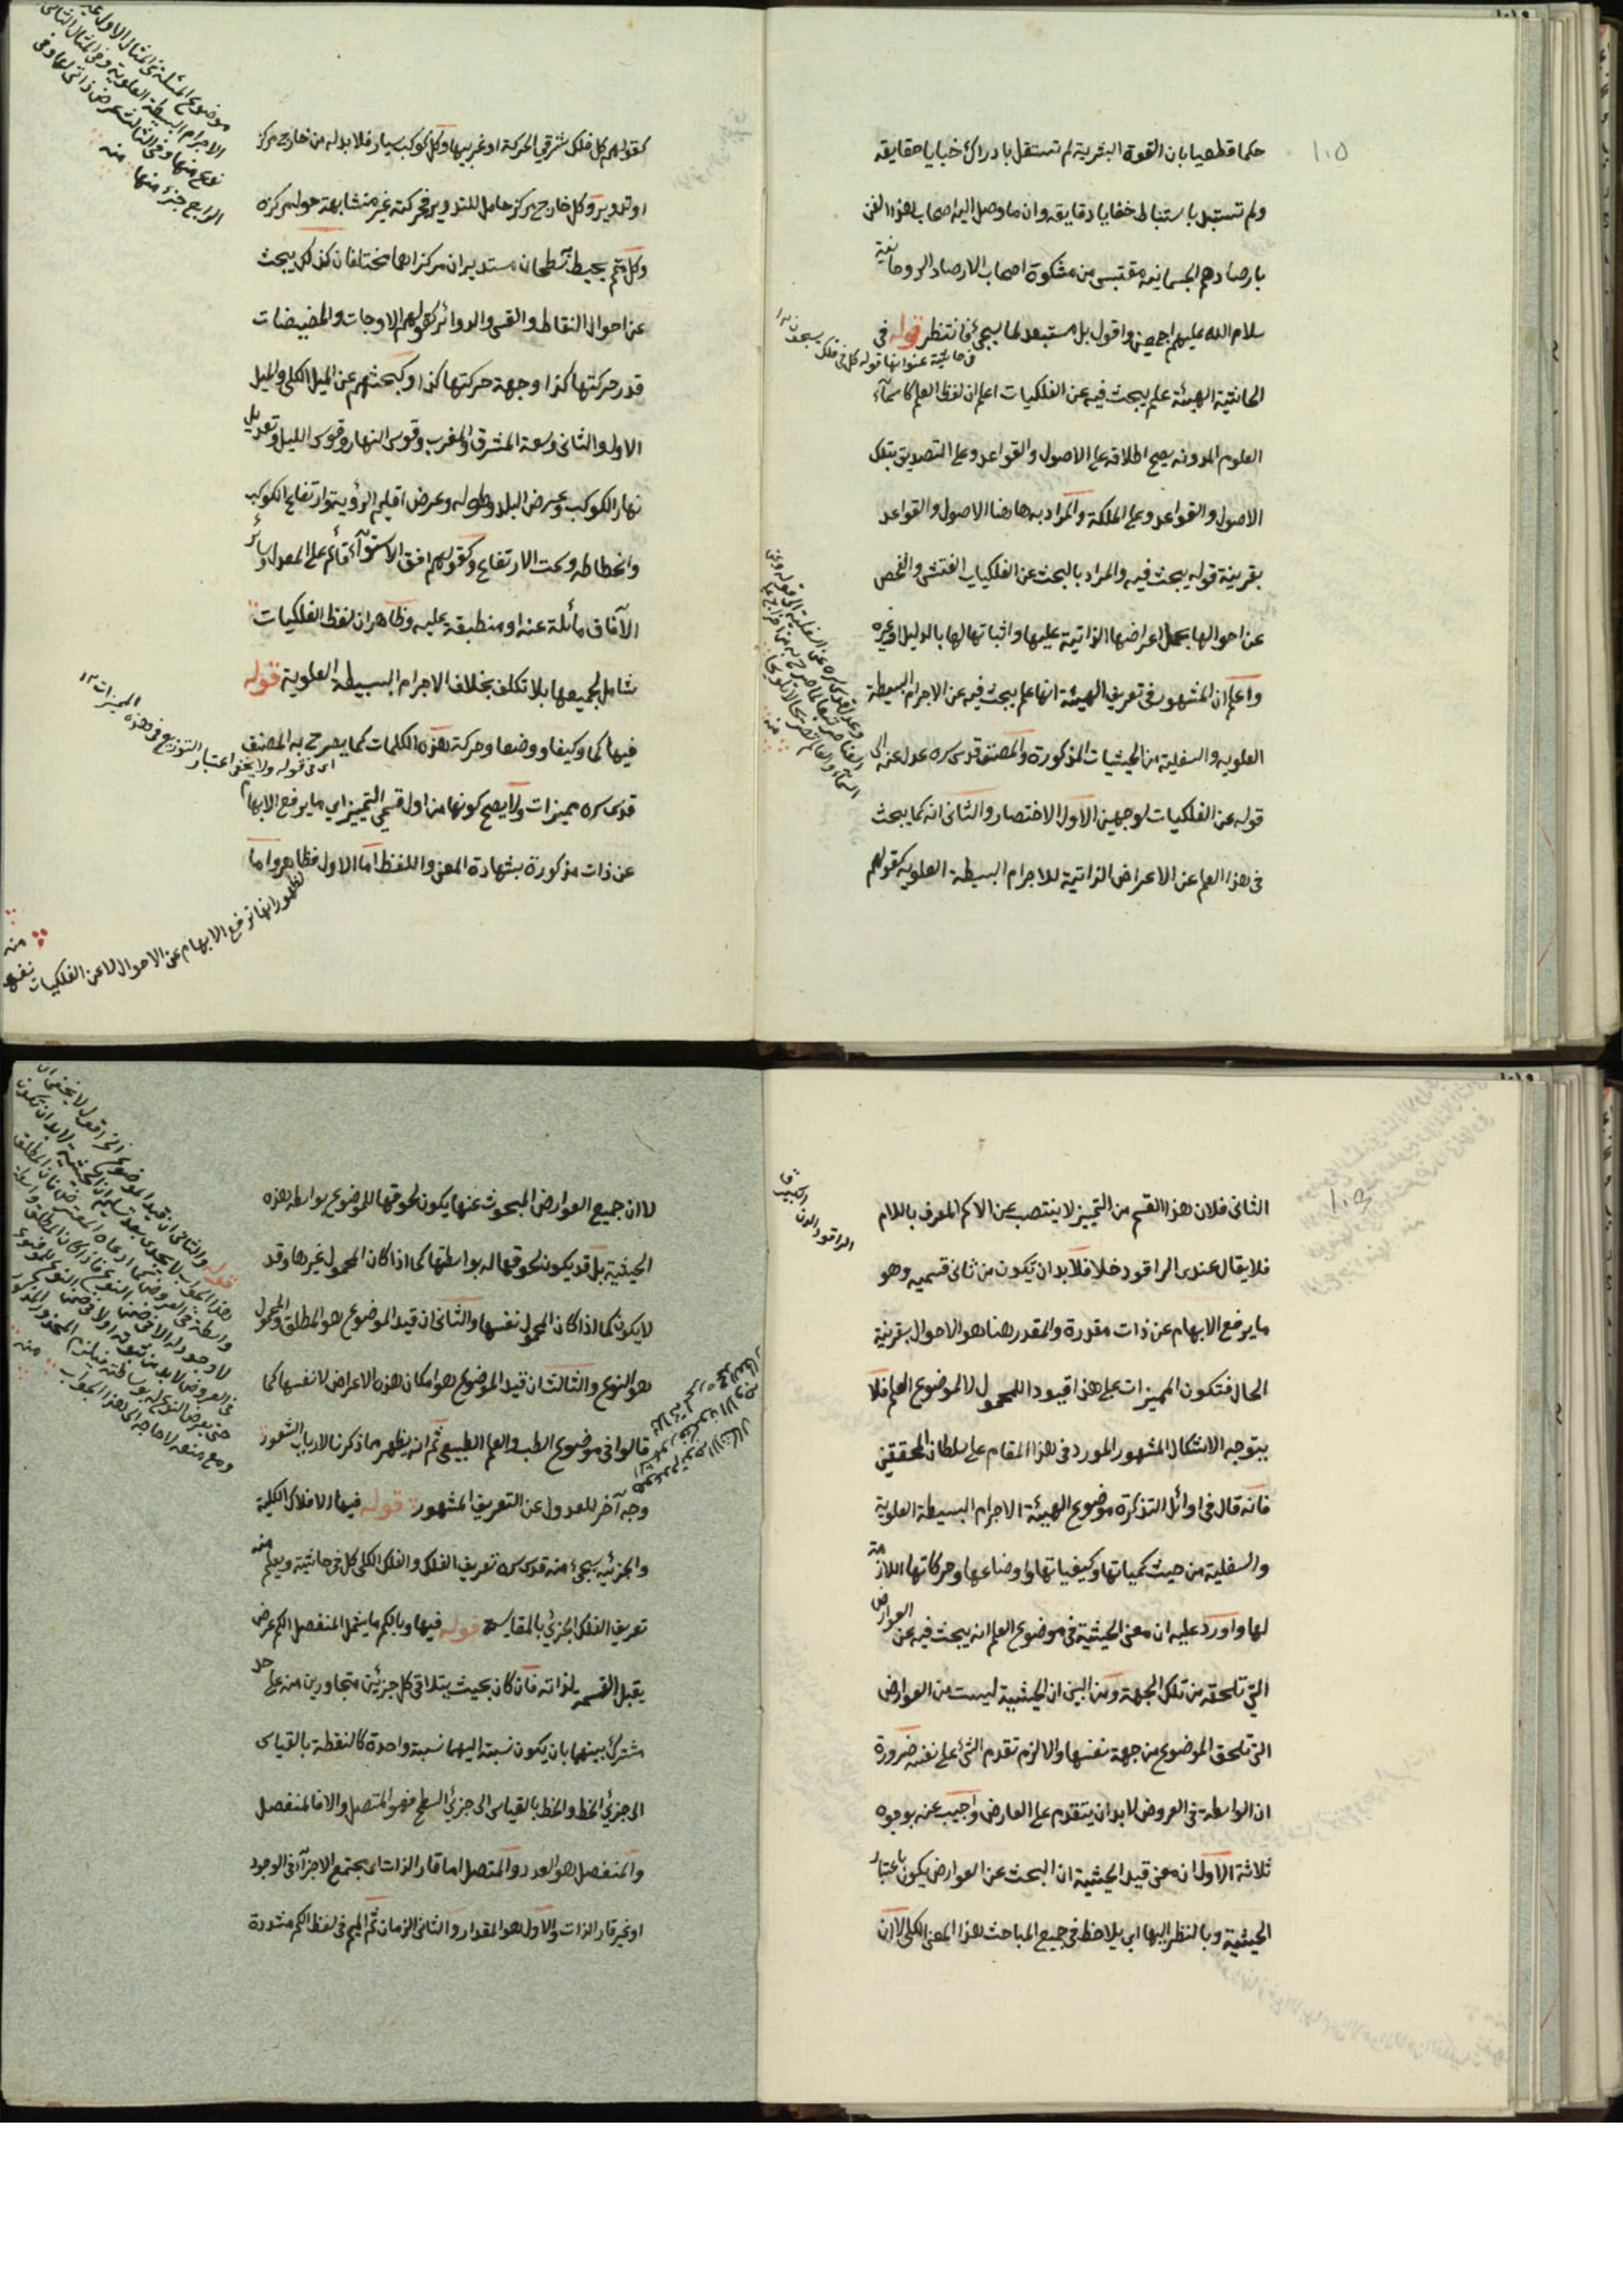 ١٠٥
حكما قطعيا بان القوة البشرية لم تستقل بادراك خبايا حقايقه
ولم تستبد باستنباط خفايا دقايقه وان ما وصل اليه اصحاب هذا الفن
بارصادهم الجسمانية مقتبس من مشكوة اصحاب الارصاد الروحانية
سلام الله عليهم اجمعين واقول بل مستبعد لما سيجئ فانتظر قوله في
في حاشية عنوانها قوله كل في فلك يسبحون
الحاشية الهيئة علم يبحث فيه عن الفلكيات اعلم ان لفظ العلم كاسماء
العلوم المدونة يصح اطلاقه على الاصول والقواعد وعلى التصديق بتلك
الاصول والقواعد وعلى الملكة والمراد به هاهنا الاصول والقواعد
بقرينة قوله يبحث فيه والمراد بالبحث عن الفلكيات الفتش والفحص
عن احوالها بحمل اعراضها الذاتية عليها واثباتها لها بالدليل او غيره
واعلم ان المشهور في تعريف الهيئة انها علم يبحث فيه عن الاجرام البسيطة
العلوية والسفلية من الحيثيات المذكورة والمصنف قدس سره عدل عنه الى
قوله عن الفلكيات لوجهين الاول الاختصار والثاني انه كما يبحث
في هذا العلم عن الاعراض الذاتية للاجرام البسيطة العلوية كقولهم
موضوع المسئلة في المثال الاول
الاجرام البسيطة العلوية وفي المثال الثاني
نوع منها وفي الثالث عرض ذاتي لها وفي
الرابع جزء منها منه
كقولهم كل فلك شرقي الحركة او غربيها وكل كوكب سيار فلا بد له من خارج مركز
او تدوير وكل خارج مركز حامل للتدوير فحركته غير متشابهة حول مركزه
وكل متمم يحيط سطحان مستديران مركزاهما مختلفان كذلك يبحث
عن احوال النقاط والقسي والدوائر كقولهم الاوجات والحضيضات
قدر حركتها كذا وجهة حركتها كذا وكبحثهم عن الميل الكلي والميل
الاول والثاني وسعة المشرق والمغرب وقوس النهار وقوس الليل وتعديل
نهار الكوكب وعرض البلد وطوله وعرض اقليم الرؤية وارتفاع الكوكب
وانحطاطه وسمت الارتفاع وكقولهم افق الاستوآء قائم على المعدل وسائر
الآفاق مائلة عنه او منطبقة عليه وظاهر ان لفظ الفلكيات
شامل لجميعها بلا تكلف بخلاف الاجرام البسيطة العلوية قوله
فيها كما وكيفا ووضعا وحركة هذه الكلمات كما يصرح به المصنف
اي في قوله ولا يخفى اعتبار التوزيع في هذه المميزات
قدس سره مميزات ولا يصح كونها من اول قسمي التمييز اي ما يرفع الابهام
عن ذات مذكورة بشهادة المعنى واللفظ اما الاول فظاهر واما
لظهور انها ترفع الابهام عن الاحوال لا عن الفلكيات نفسها
منه
الراقود الدن الكبير قا
الثاني فلان هذا القسم من التمييز لا ينتصب عن الاسم المعرف باللام
فلا يقال عندي الراقود خلا فلا بد ان تكون من ثاني قسميه وهو
ما يرفع الابهام عن ذات مقدرة والمقدر هنا هو الاحوال بقرينة
الحال فتكون المميزات على هذا قيودا للمحمول لا لموضوع العلم فلا
يتوجه الاشكال المشهور المورد في هذا المقام على سلطان المحققين
فانه قال في اوائل التذكرة موضوع الهيئة الاجرام البسيطة العلوية
والسفلية من حيث كمياتها وكيفياتها واوضاعها وحركاتها اللازمة
لها واورد عليه ان معنى الحيثية في موضوع العلم انه يبحث فيه عن العوارض
التي تلحقه من تلك الجهة ومن البين ان الحيثية ليست من العوارض
التي تلحق الموضوع من جهة نفسها والا لزم تقدم الشئ على نفسه ضرورة
ان الواسطة في العروض لا بد ان يتقدم على العارض واجيب عنه بوجوه
ثلاثة الاول ان معنى قيد الحيثية ان البحث عن العوارض يكون باعتبار
الحيثية وبالنظر اليها اي يلاحظ في جميع المباحث هذا المعنى الكلي لا ان
لا ان جميع العوارض المبحوث عنها يكون لحوقها للموضوع بواسطة هذه
الحيثية بل قد يكون لحوقها له بواسطتها كما اذا كان المحمول غيرها وقد
لا يكون كما اذا كان المحمول نفسها والثاني ان قيد الموضوع هو المطلق والمحمول
هو النوع والثالث ان قيد الموضوع هو امكان هذه الاعراض لا نفسها كما
قالوا في موضوع الطب والعلم الطبيعي ثم انه يظهر مما ذكرنا لارباب الشعور
وجه آخر للعدول عن التعريف المشهور قوله فيها الافلاك الكلية
والجزئية سيجئ منه قدس سره تعريف الفلك والفلك الكلي كل في حاشية ويعلم منه
تعريف الفلك الجزئي بالمقايسة قوله فيها وبالكم ما يشمل المنفصل الكم عرض
يقبل القسمة لذاته فان كان بحيث يتلاقى كل جزئين متجاورين منه على حد
مشترك بينهما بان يكون نسبته اليهما نسبة واحدة كالنقطة بالقياس
الى جزئي الخط والخط بالقياس الى جزئي السطح فهو المتصل والا فالمنفصل
والمنفصل هو العدد والمتصل اما قار الذات اي يجتمع الاجزآء في الوجود
او غير قار الذات والاول هو المقدار والثاني الزمان ثم الميم في لفظ الكم مشددة